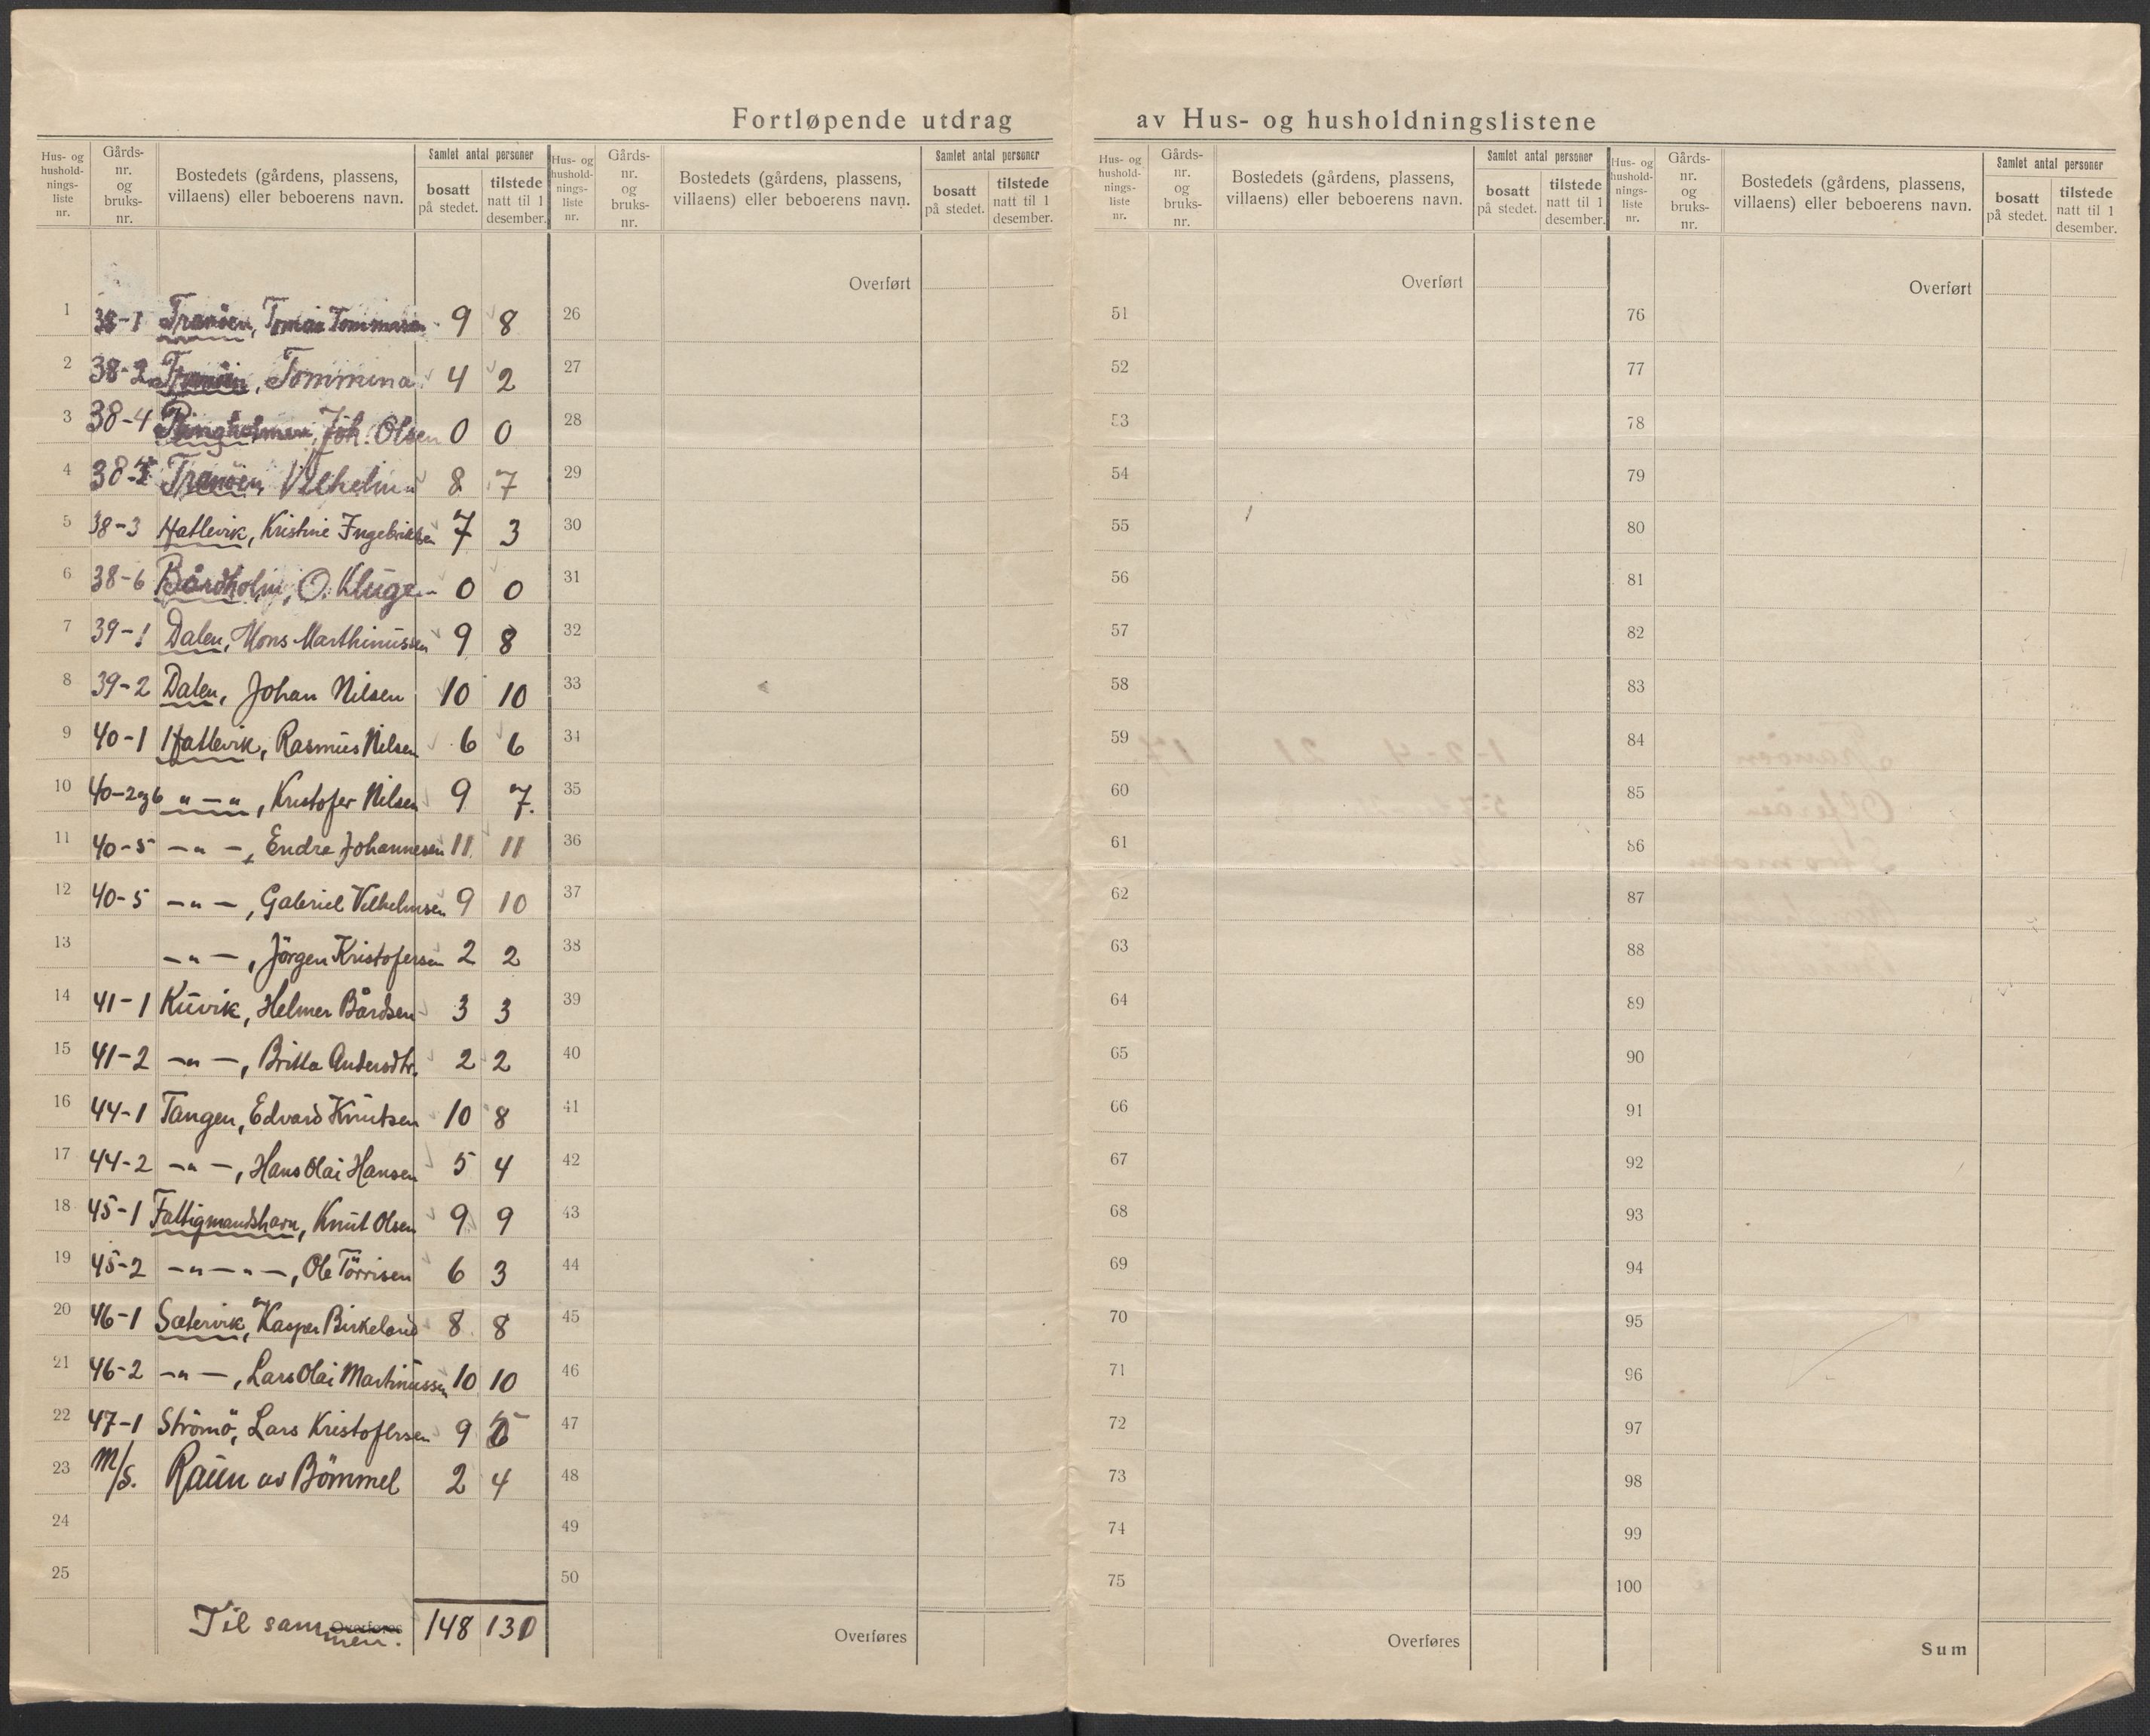 Fortløpende utdrag av Hus- og husholdningslistene
Hus- og hushold-nings-liste nr. Gårds-nr. og bruks-nr. Bostedets (gårdens, plassens, villaens) eller beboerens navn. Samlet antal personer bosatt på stedet. tilstede natt til 1 desember.
Hus- og hushold-nings-liste nr. Gårds-nr. og bruks-nr. Bostedets (gårdens, plassens, villaens) eller beboerens navn. Samlet antal personer bosatt på stedet. tilstede natt til 1 desember.
Hus- og hushold-nings-liste nr. Gårds-nr. og bruks-nr. Bostedets (gårdens, plassens, villaens) eller beboerens navn. Samlet antal personer bosatt på stedet. tilstede natt til 1 desember.
Hus- og hushold-nings-liste nr. Gårds-nr. og bruks-nr. Bostedets (gårdens, plassens, villaens) eller beboerens navn. Samlet antal personer bosatt på stedet. tilstede natt til 1 desember.
Overført Overført Overført
1 38-1 Tranöen, Tomas Tommasen 9 8 26 51 76
2 38-2 Tranöen, Tommina 4 2 27 52 77
3 38-4 Ringholmen, Joh. Olsen 0 0 28 53 78
4 Tranöen, Vilhelm 8 7 29 54 79
5 38-3 Hatlevik, Kristine Ingebriktsen 7 3 30 55 80
6 38-6 Bårdholm, O. Kluge 0 0 31 56 81
7 39-1 Dalen, Mons Marthinussen 9 8 32 57 82
8 39-2 Dalen, Johan Nilsen 10 10 33 58 83
9 40-1 Hatlevik, Rasmus Nilsen 6 6 34 59 84
10 40-2og6 "—", Kristofer Nilsen 9 7. 35 60 85
11 40-5 —"—, Endre Johannesen 11 11 36 61 86
12 40-5 —"—, Gabriel Vilhelmsen 9 10 37 62 87
13 —"—, Jörgen Kristofersen 2 2 38 63 88
14 41-1 Kuvik, Helmer Bårdsen 3 3 39 64 89
15 41-2 —"—, Britta Andersdtr. 2 2 40 65 90
16 44-1 Tangen, Edvard Knutsen 10 8 41 66 91
17 44-2 —"—, Hans Olai Hansen 5 4 42 67 92
18 45-1 Fattigmandshavn, Knut Olsen 9 9 43 68 93
19 45-2 —"—"—, Ole Törrisen 6 3 44 69 94
20 46-1 Sætervik, Kasper Birkeland 8 8 45 70 95
21 46-2 —"—, Lars Olai Martinussen 10 10 46 71 96
22 47-1 Strömö, Lars Kristofersen 9 47 72 97
23 M/S. Raun av Bömmel 2 4 48 73 98
24 49 74 99
25 50 75 100
Til sammen. Overføres 148 130 Overføres Overføres Sum